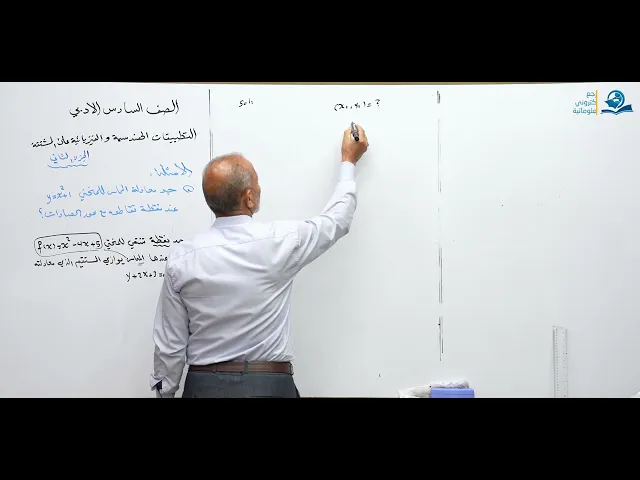 الصف السادس الادبي
التطبيقات الهندسية والفيزيائية على المشتقة
الجزء الثاني
الامثلة
جد معادلة المماس للمنحني y=x²+1
عند نقطة تقاطعه مع محور الصادات؟
جد نقطة تنتمي للمنحني f(x)=x²-4x+5
عندها المماس يوازي المستقيم الذي معادلته
y+2x+
Sol:
(x₁, y₁) = ?